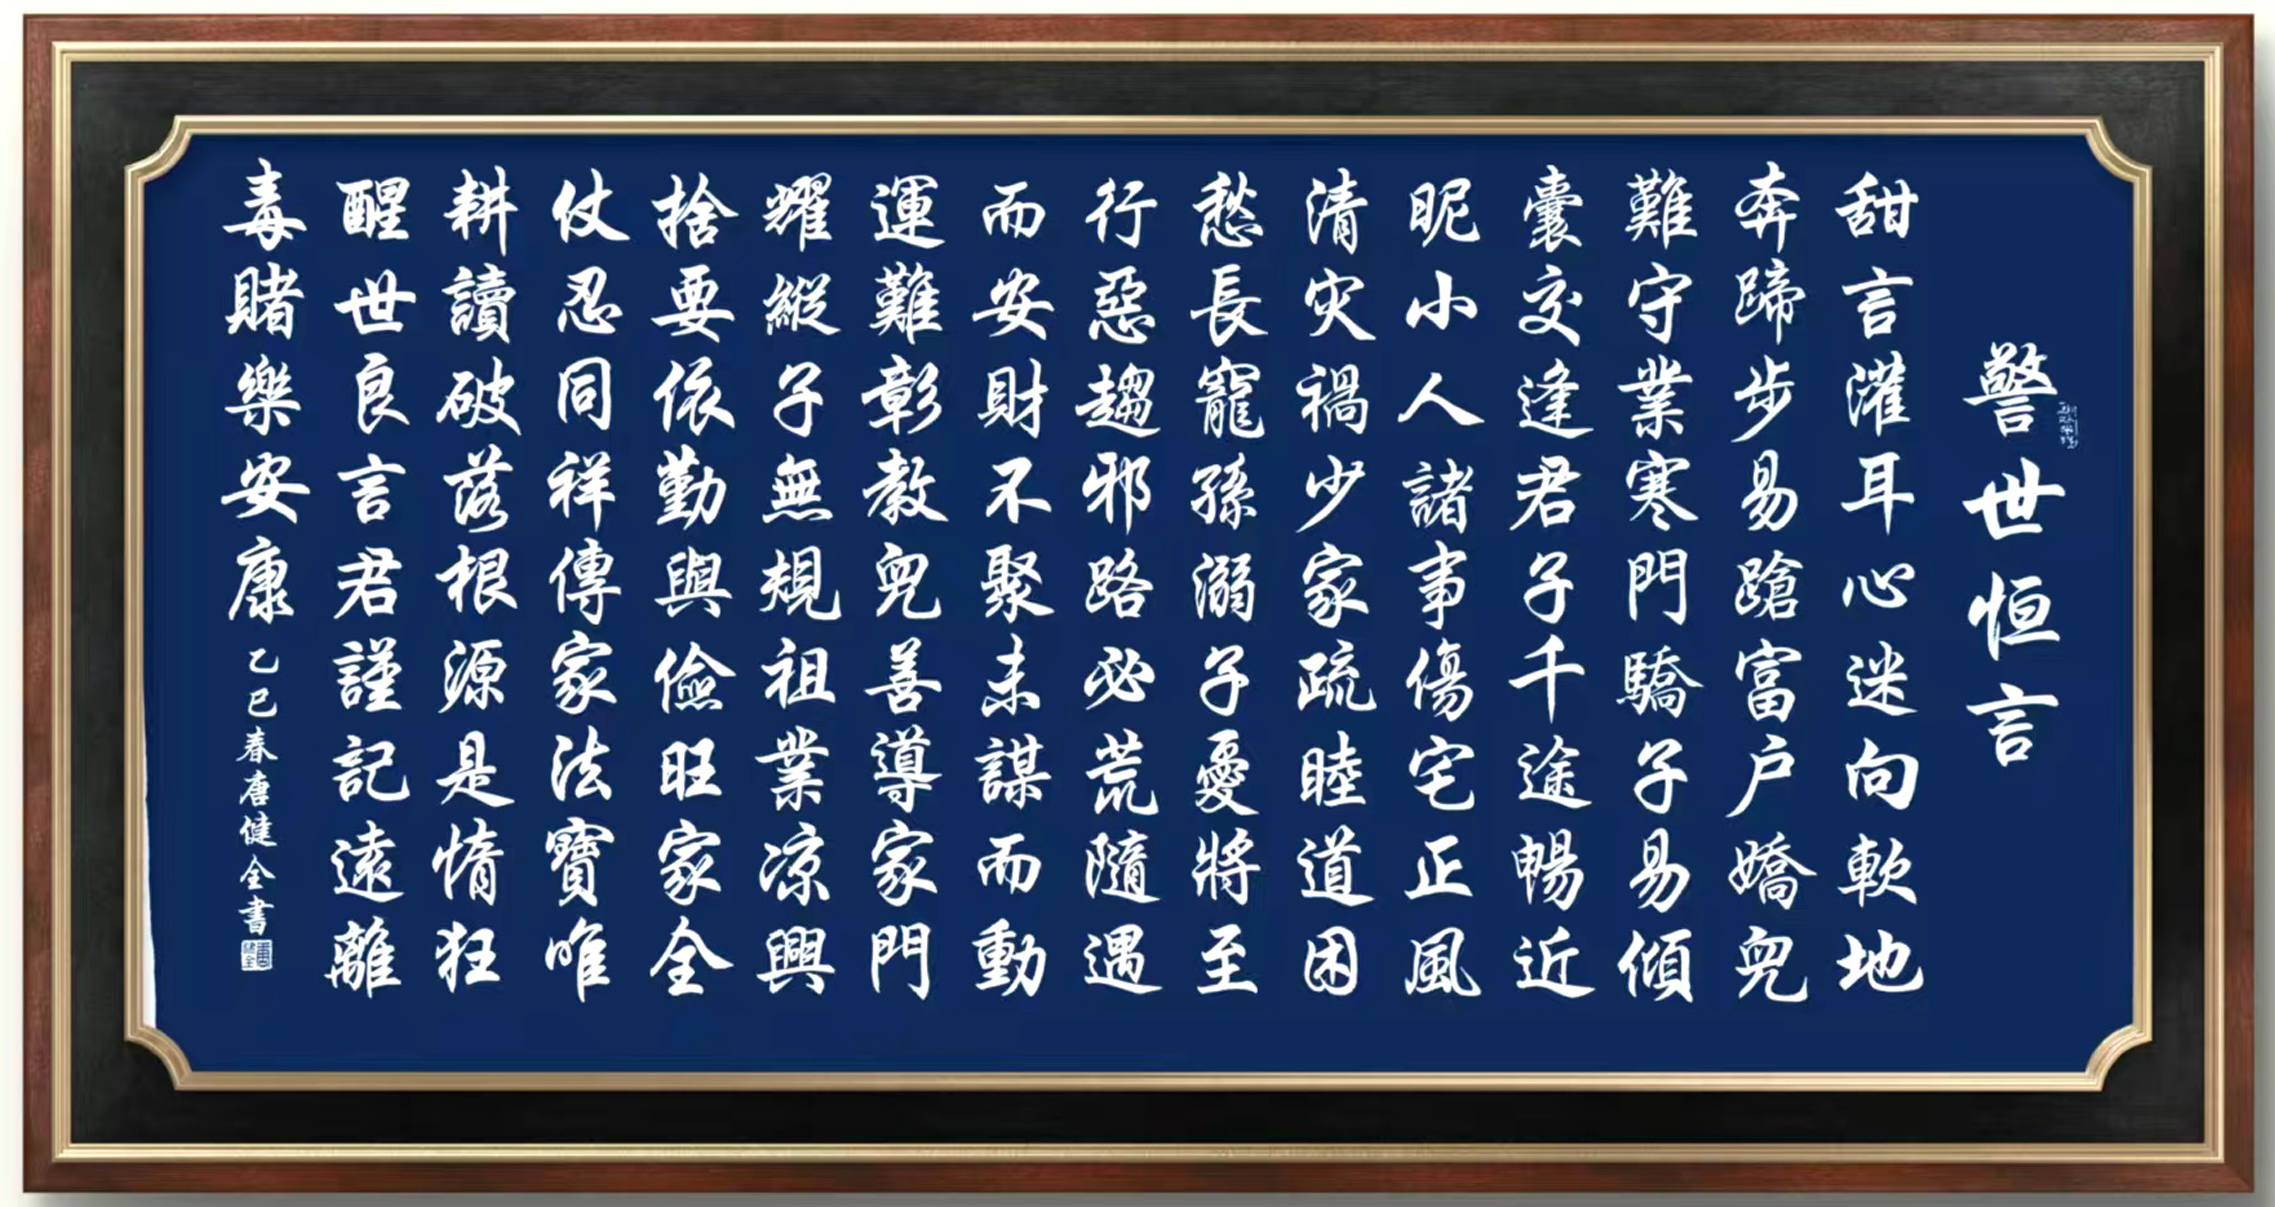 警世恒言
甜言灌耳心迷向軟地
奔蹄步易蹌富户嬌兒
難守業寒門驕子易傾
囊交逢君子千途暢近
昵小人諸事傷宅正風
清灾禍少家疏睦道困
愁長寵孫溺子憂將至
行惡趨邪路必荒隨遇
而安財不聚未謀而動
運難彰教兒善導家門
耀縱子無規祖業凉興
捨要依勤與儉旺家全
仗忍同祥傳家法寶唯
耕讀破落根源是惰狂
醒世良言君謹記遠離
毒賭樂安康 乙巳春唐健全書